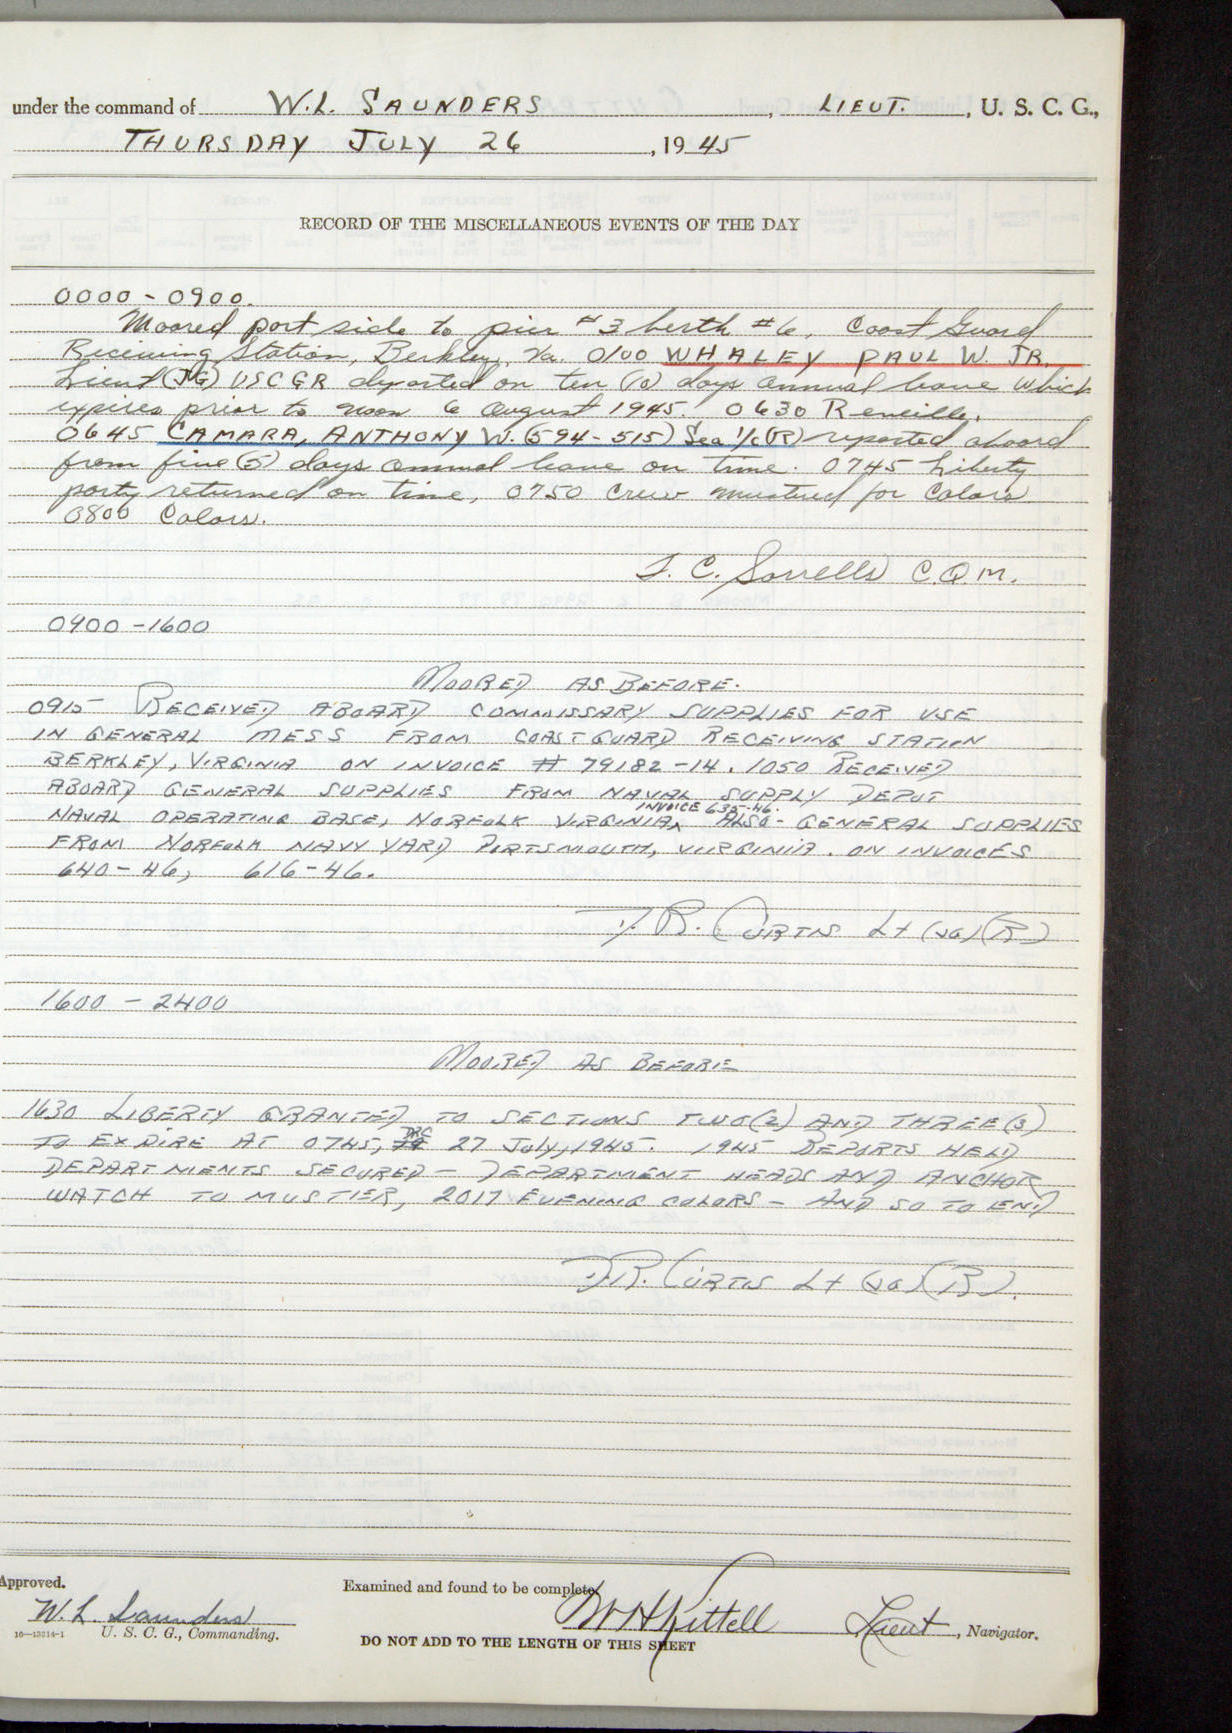 under the command of W.L. SAUNDERS, LIEUT., U. S. C. G.,
THURSDAY JULY 26, 1945
RECORD OF THE MISCELLANEOUS EVENTS OF THE DAY
0000 - 0900.
Moored port side to pier #3 berth #6, Coast Guard
Receiving Station, Berkley, Va. 0100 WHALEY PAUL W. JR.
Lieut (JG) USCGR departed on ten (10) days annual leave which
expires prior to noon 6 August 1945. 0630 Reveille.
0645 CAMARA, ANTHONY W. (594-515) Sea 1/c (R) reported aboard
from five (5) days annual leave on time. 0745 Liberty
party returned on time, 0750 Crew mustered for Colors
0800 Colors.
J. C. Sorrells C.Q.M.
0900 - 1600
MOORED AS BEFORE.
0915 RECEIVED ABOARD COMMISSARY SUPPLIES FOR USE
IN GENERAL MESS FROM COAST GUARD RECEIVING STATION
BERKLEY, VIRGINIA ON INVOICE # 79182-14. 1050 RECEIVED
ABOARD GENERAL SUPPLIES FROM NAVAL SUPPLY DEPOT
INVOICE 635-46.
NAVAL OPERATING BASE, NORFOLK VIRGINIA, ALSO - GENERAL SUPPLIES
FROM NORFOLK NAVY YARD PORTSMOUTH, VIRGINIA. ON INVOICES
640-46, 616-46.
R. CURTIS Lt (JG) (R)
1600 - 2400
MOORED AS BEFORE
1630 LIBERTY GRANTED TO SECTIONS TWO (2) AND THREE (3)
DRC
TO EXPIRE AT 0745, 27 July, 1945. 1945 REPORTS HELD
DEPARTMENTS SECURED - DEPARTMENT HEADS AND ANCHOR
WATCH TO MUSTER, 2017 EVENING COLORS - AND SO TO END
D.R. CURTIS Lt (JG) (R).
Approved.
Examined and found to be complete
W. L. Saunders
U. S. C. G., Commanding.
W H Kittell Lieut, Navigator.
16-13214-1
DO NOT ADD TO THE LENGTH OF THIS SHEET